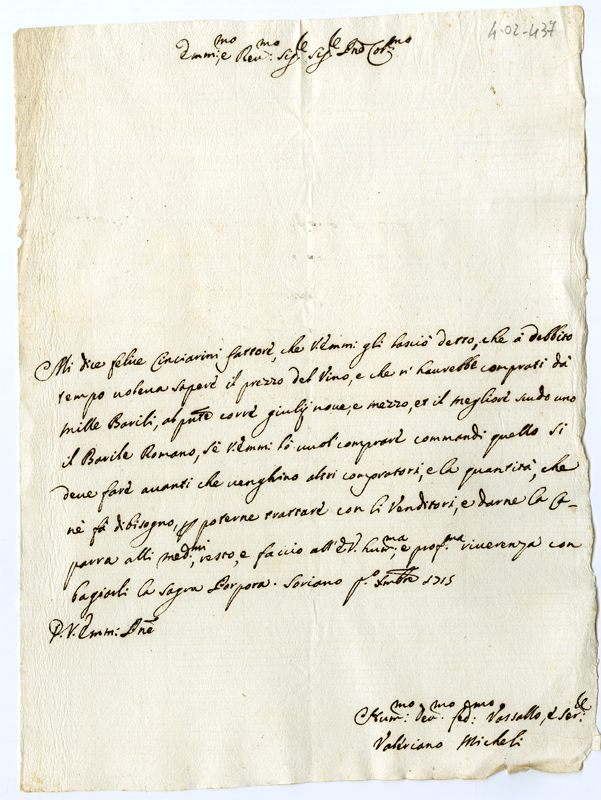 4-02-437
Emm:mo e Rev:mo Sig:le Sig:le Pñe Col:mo
Mi dice felice Cinciarini fattore, che V.Emm: gli lasciò detto, che à debbito
tempo voleva sapere il prezzo del Vino, e che n'haurebbe comprati dà
mille Barili, al pñte corre giulij nove, e mezzo, et il megliore scudo uno
il Barile Romano, Se V.Emm: lò vuol comprare commandi quello si
deve fare avanti che venghino altri compratori, e la quantità, che
nè fà dibisogno, per poterne trattare con li Venditori, e darne la Ca-
parra alli med:mi, resto, e faccio all'E.V. hum:ma, e prof:ma riverenza con
bagiarli la sagra Porpora. Soriano p.o Xmbre 1715
D.V. Emm: Pñe
Hum:mo dev:mo fed:mo Vassallo, è Ser:le
Valeriano Micheli